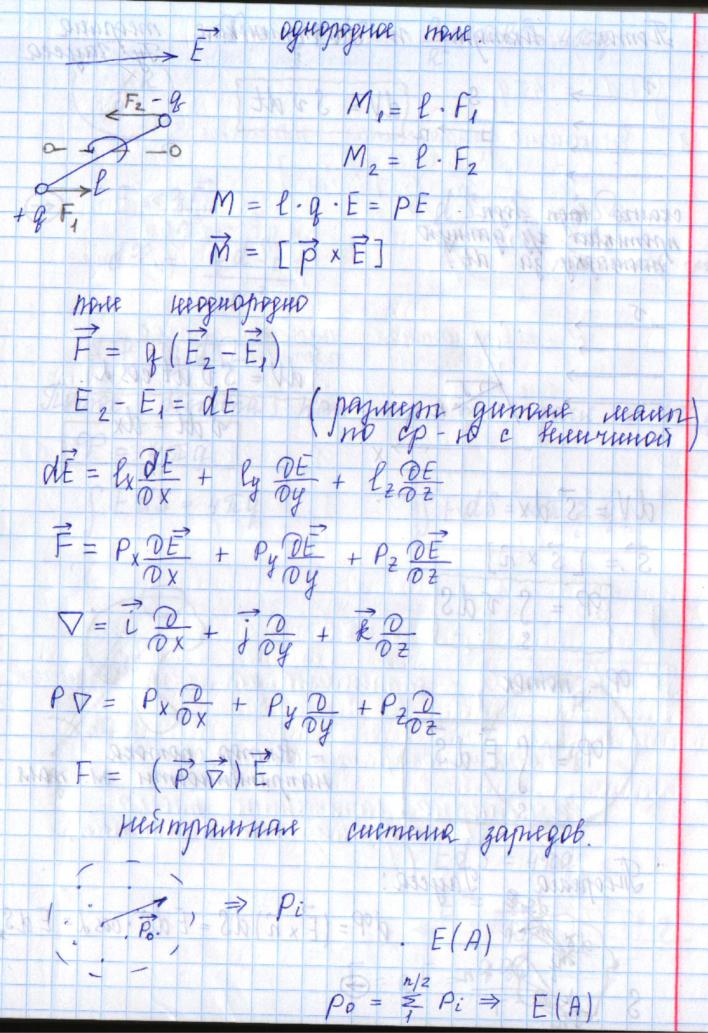 однородное поле.
E⃗
F₂ -q
M₁ = l · F₁
M₂ = l · F₂
l
+q F₁
M = l · q · E = pE
M⃗ = [p⃗ × E⃗]
поле неоднородно
F⃗ = q(E⃗₂ - E⃗₁)
E₂ - E₁ = dE (размеры диполя малы
по ср-ю с величиной)
dE⃗ = lx ∂E/∂x + ly ∂E/∂y + lz ∂E/∂z
F⃗ = Px ∂E⃗/∂x + Py ∂E⃗/∂y + Pz ∂E⃗/∂z
∇ = i⃗ ∂/∂x + j⃗ ∂/∂y + k⃗ ∂/∂z
P∇ = Px ∂/∂x + Py ∂/∂y + Pz ∂/∂z
F = (p⃗ ∇⃗) E⃗
нейтральная система зарядов.
P⃗₀ ⇒ Pi
· E(A)
P₀ = Σ₁^(n/2) Pi ⇒ E(A)